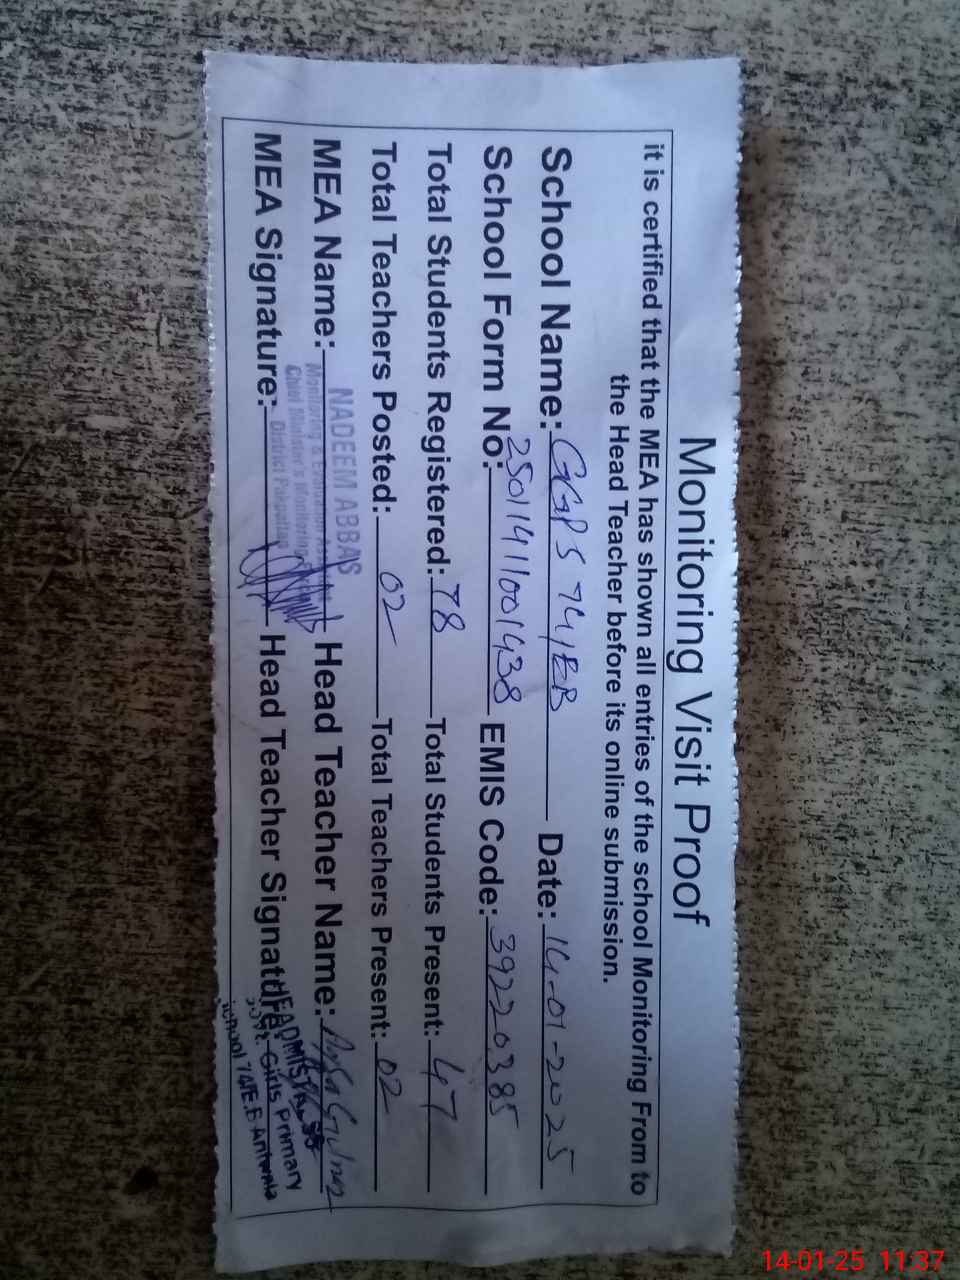 Monitoring Visit Proof
it is certified that the MEA has shown all entries of the school Monitoring From to
the Head Teacher before its online submission.
School Name: GGPS 74/EB Date: 14-01-2025
School Form No: 25011411001438 EMIS Code: 39220385
Total Students Registered: 78 Total Students Present: 47
Total Teachers Posted: 02 Total Teachers Present: 02
MEA Name: NADEEM ABBAS Head Teacher Name:
Monitoring & Evaluation
Chief Minister's Monitoring
District Pakpattan
MEA Signature: Head Teacher Signature:
HEADMISTRESS
Govt. Girls Primary
School 74/E.B
14-01-25 11:37